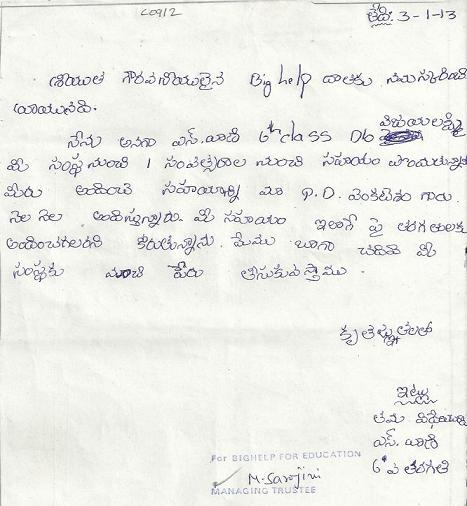 C0912
తేది. 3-1-13
శ్రీయుత గౌరవనీయులైన Big help దాతకు నమస్కరించి
వ్రాయునది.
నేను అనగా ఎస్. వాణి 6th class D/o విజయలక్ష్మి
మీ సంస్థ నుంచి 1 సంవత్సరాల నుంచి సహాయం పొందుతున్నాను
మీరు అందించే సహాయాన్ని మా P.D. వెంకటేశం గారు.
నెల నెల అందిస్తున్నారు. మీ సహాయం ఇలాగే పై తరగతులకు
అందించగలరని కోరుతున్నాను. మేము బాగా చదివి మీ
సంస్థకు మంచి పేరు తీసుకువస్తాము.
కృతజ్ఞతలతో
ఇట్లు
తమ విధేయురాలు
ఎస్. వాణి
6వ తరగతి
For BIGHELP FOR EDUCATION
M. Sarojini
MANAGING TRUSTEE